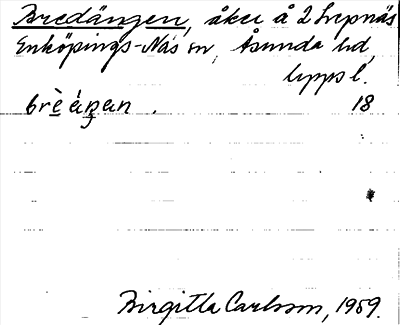 Bredängen, åker å 2 Srepnäs
Enköpings-Näs sn, Åsunda hd,
Uppsl.
brè ángen . 18
Birgitta Carlsson, 1959.